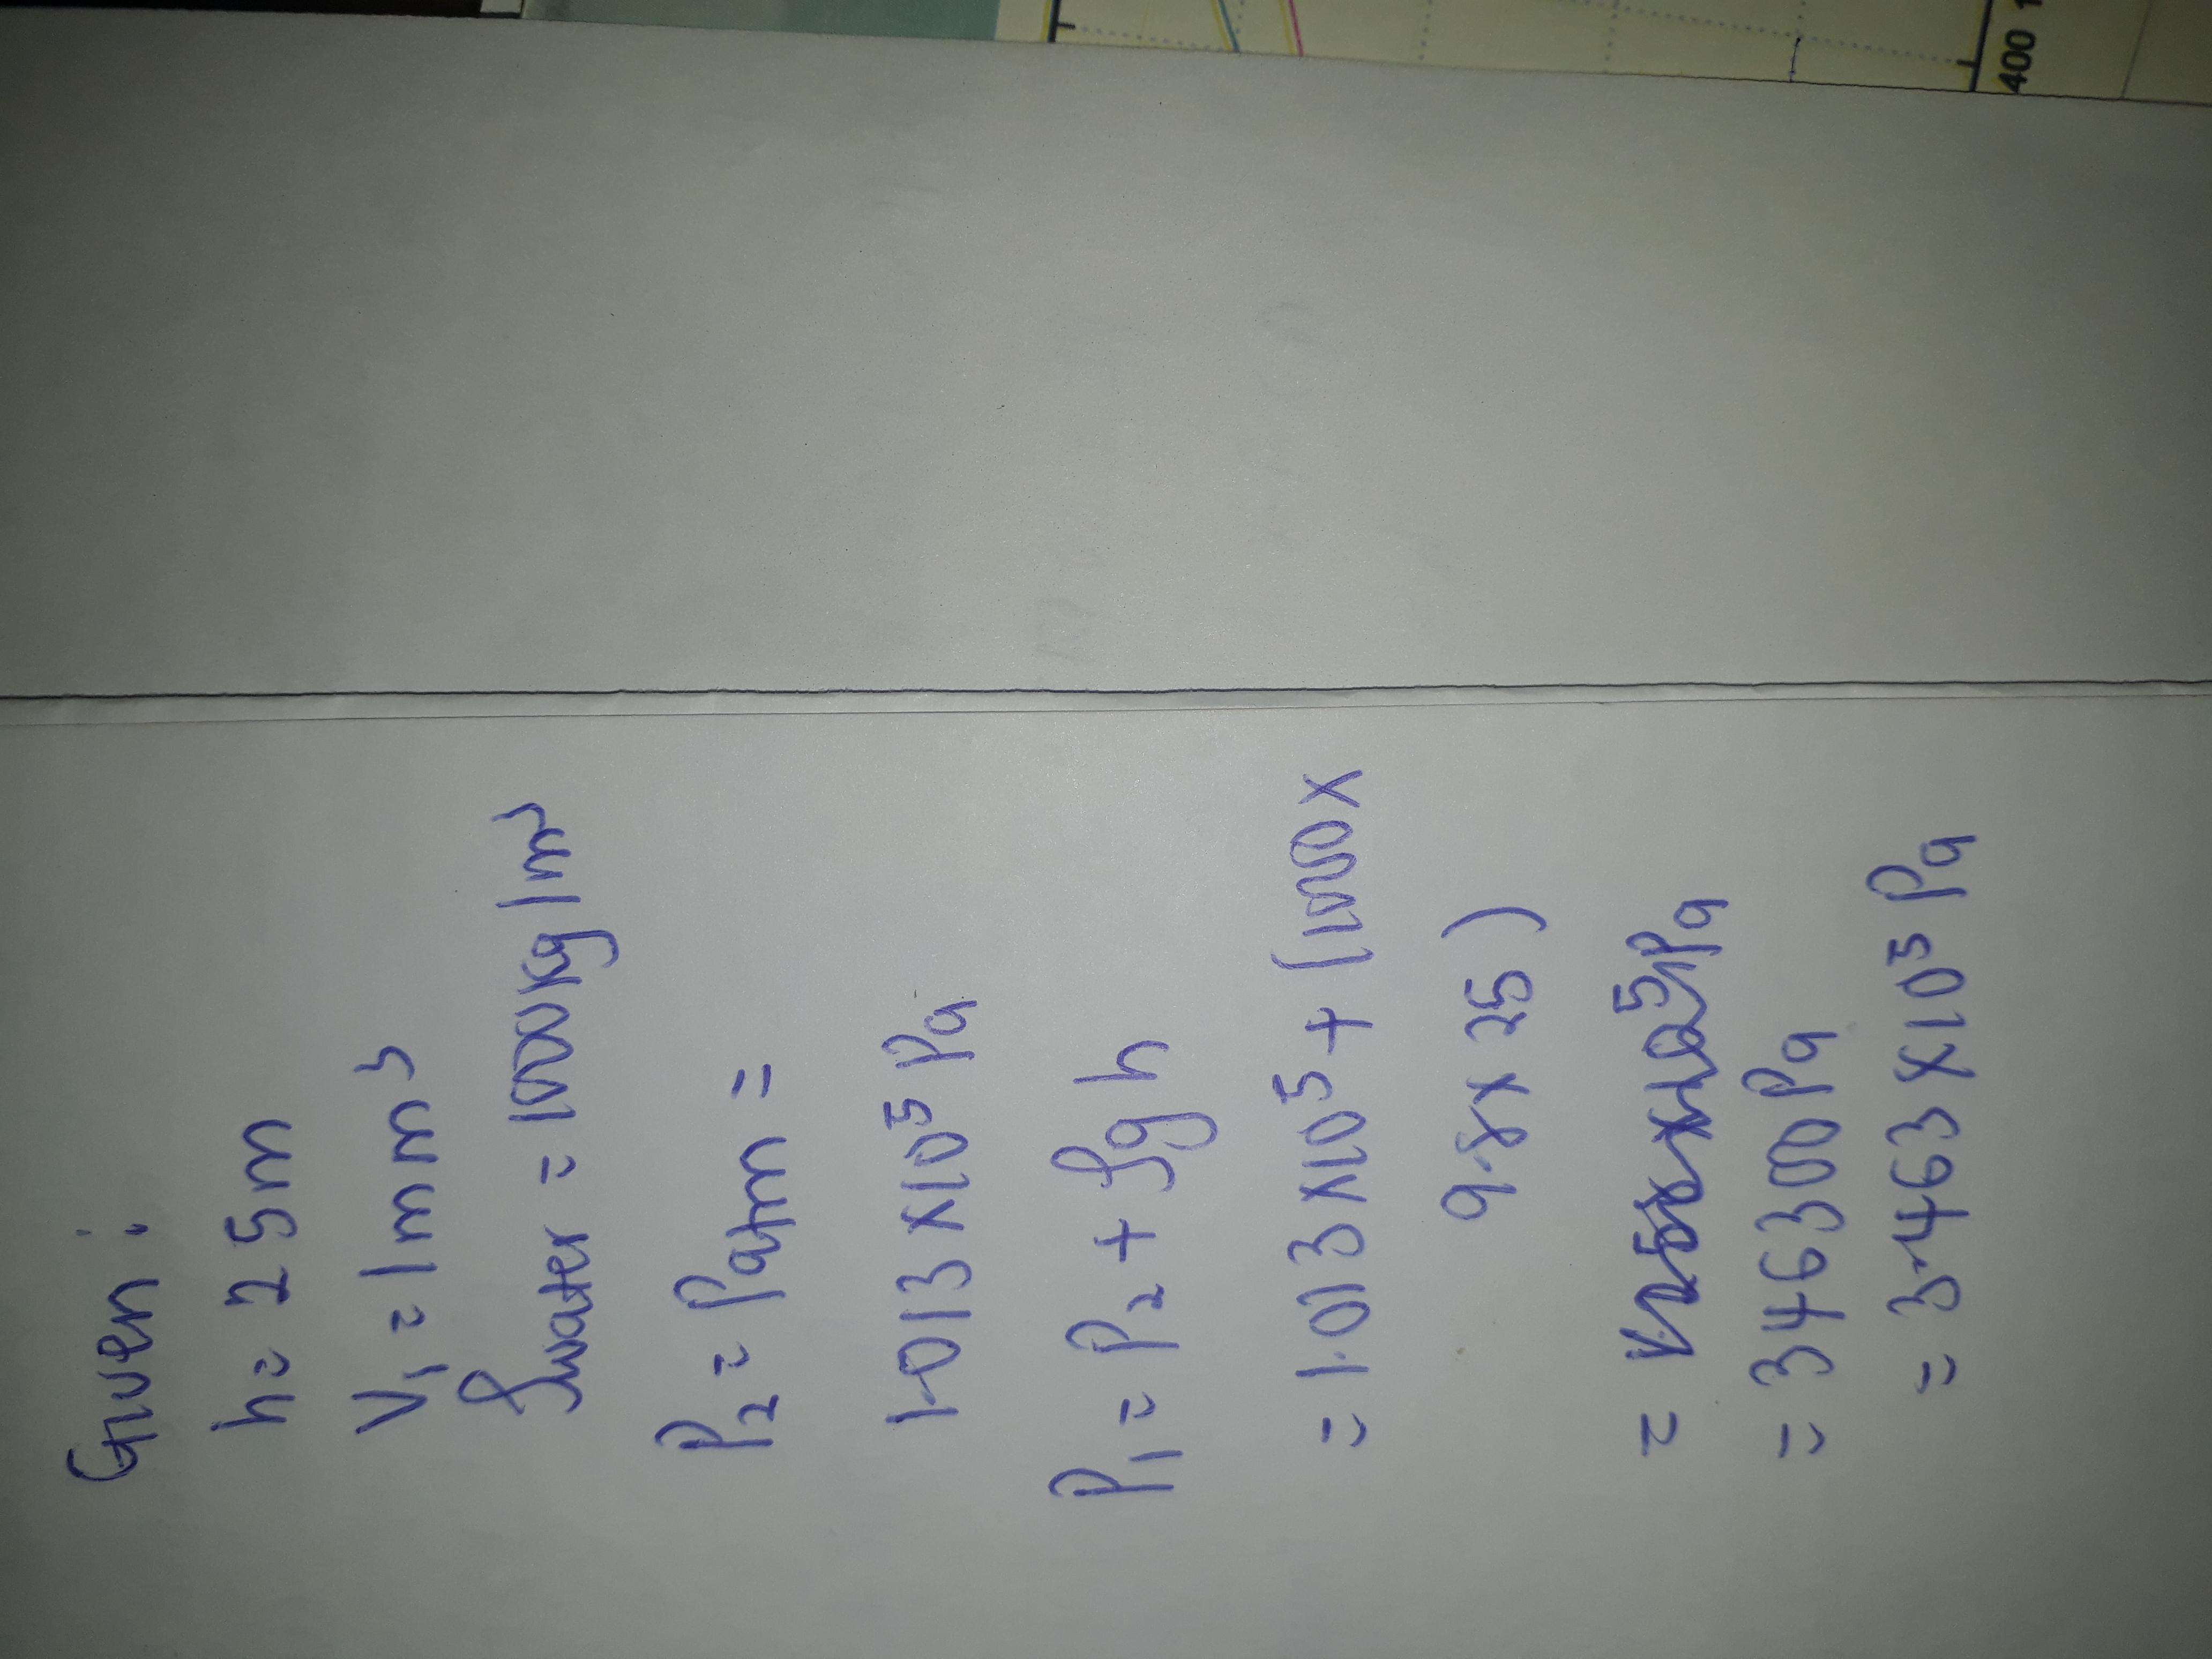 Given:
h = 25m
V₁ = 1mm³
ρwater = 1000kg/m³
P₂ = Patm =
1.013 x10⁵ Pa
P₁ = P₂ + ρgh
= 1.013 x10⁵ + (1000x
9.8 x 25)
=
= 346300Pa
= 3.463 x10⁵ Pa
400